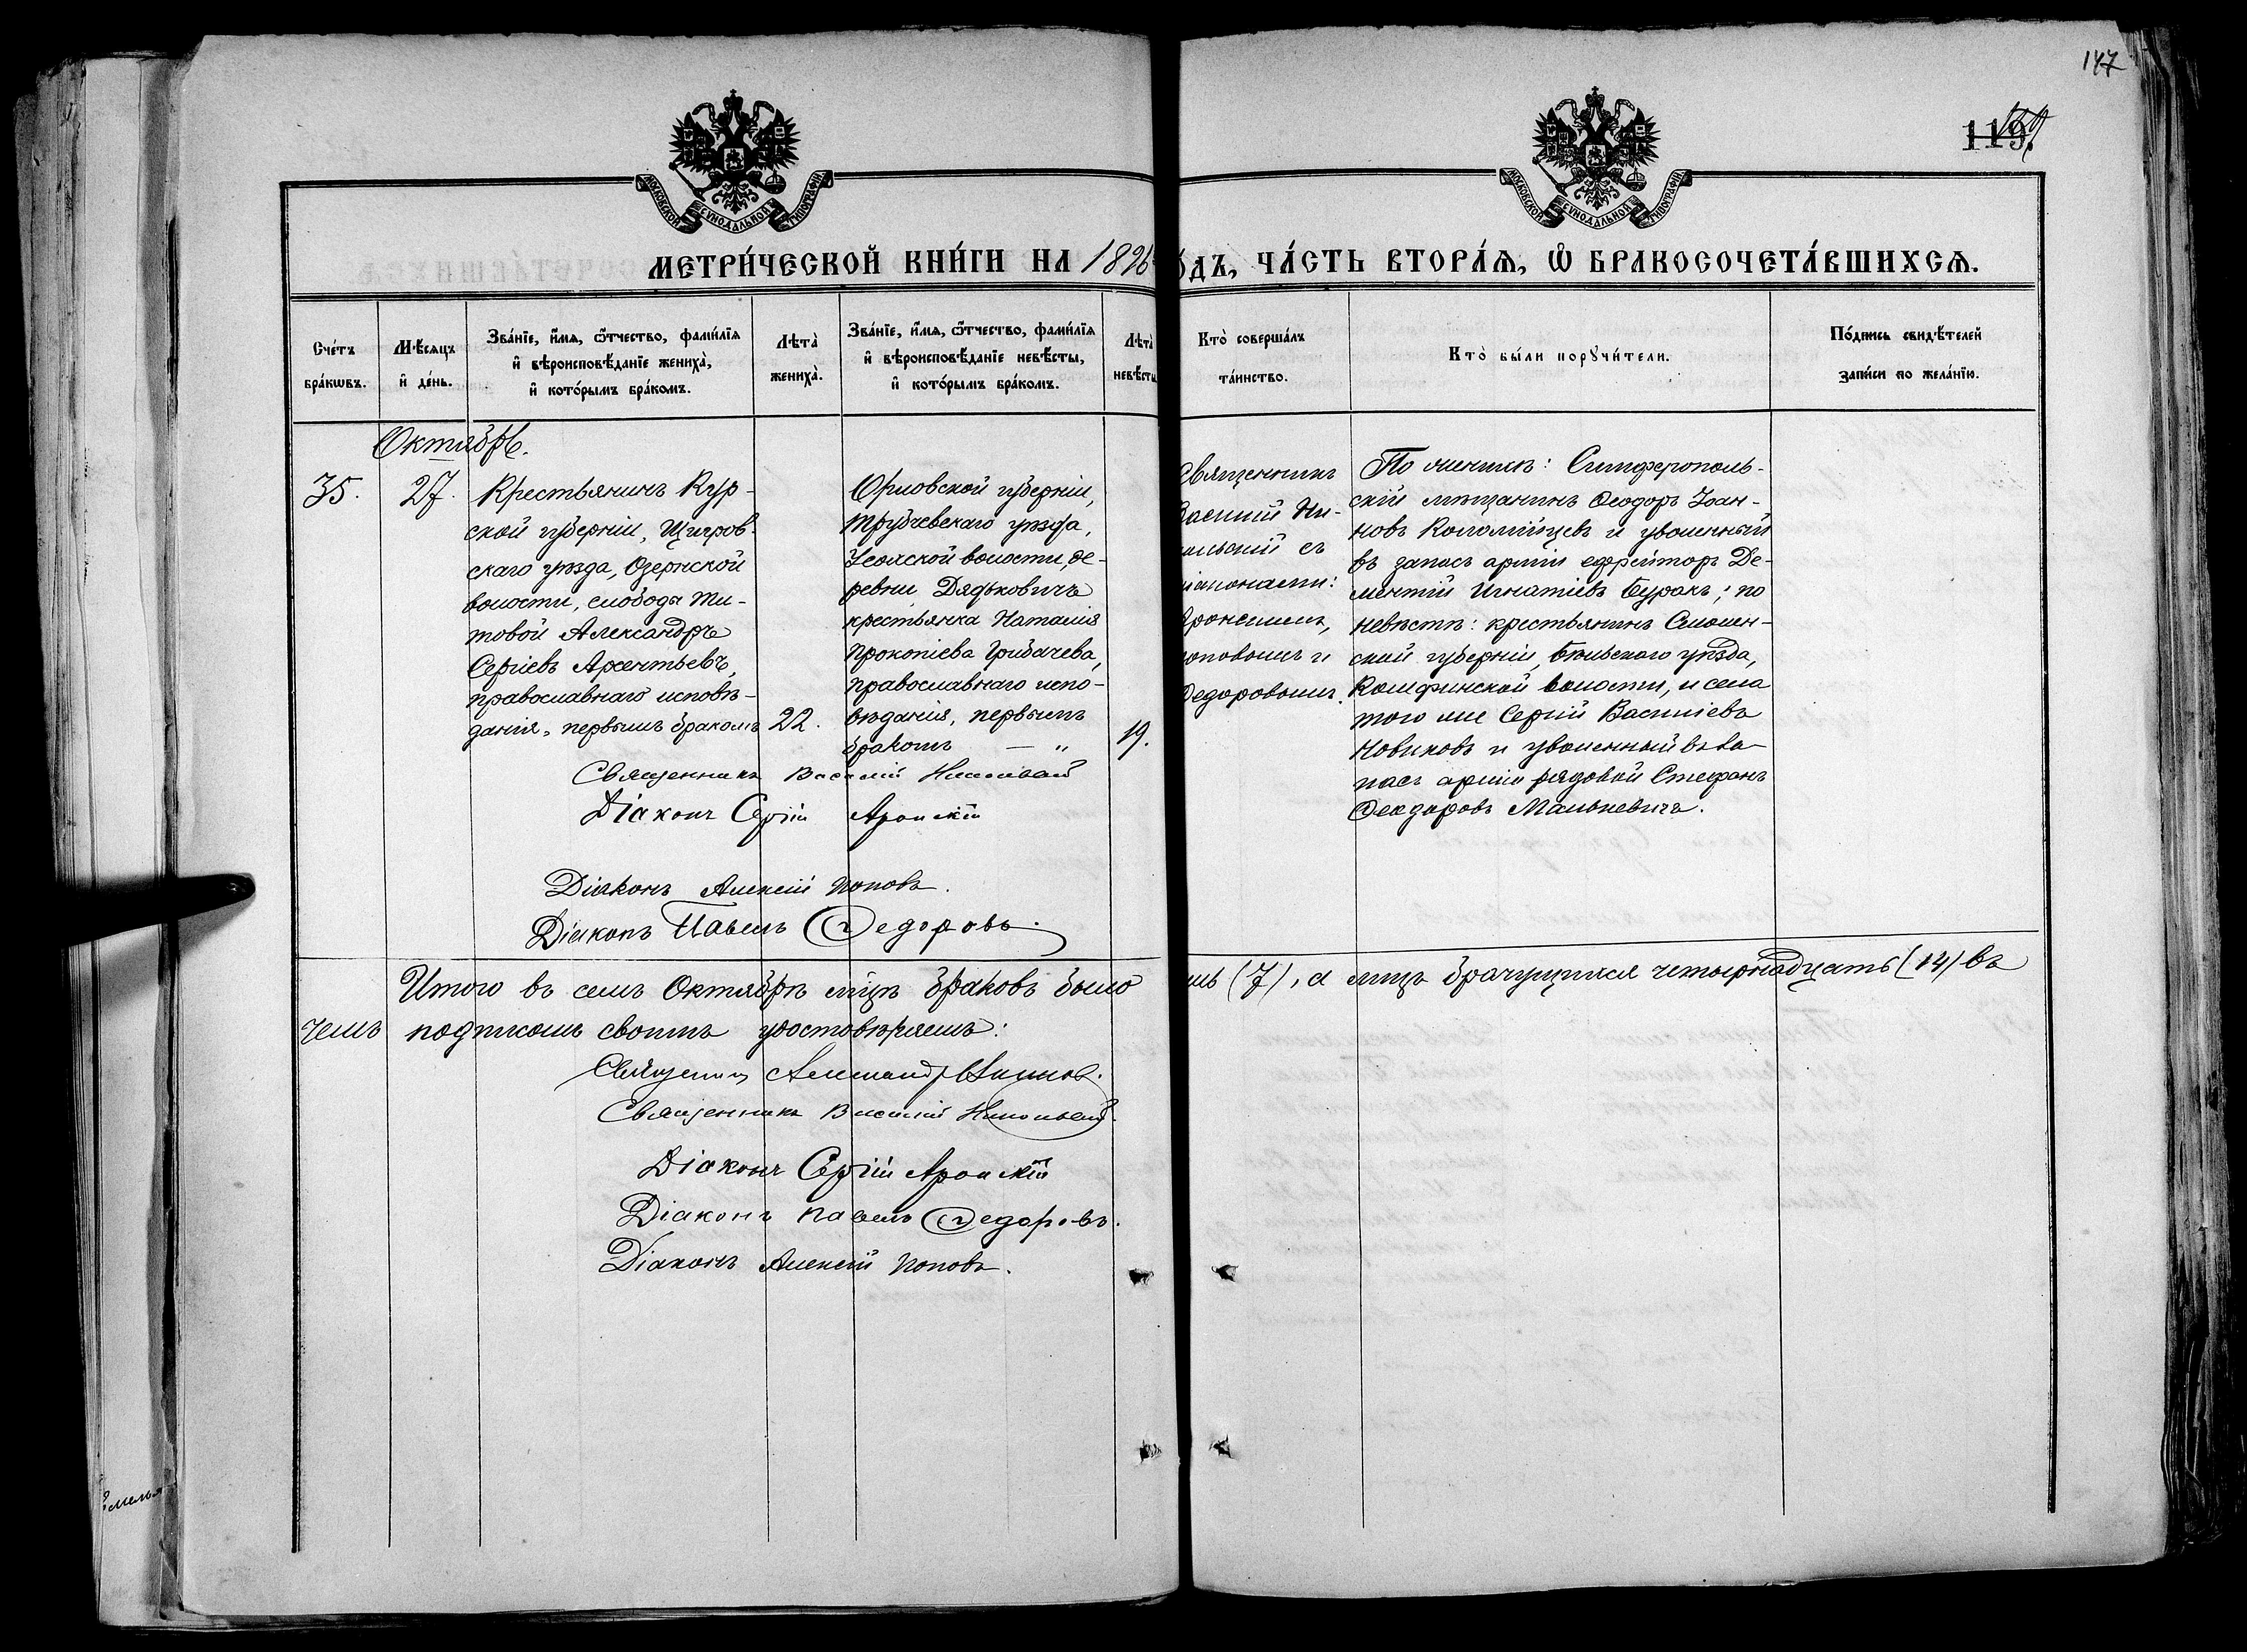 147
119.
МОСКОВСКОЙ СѴНОДАЛЬНОЙ ТИПОГРАФІИ
МОСКОВСКОЙ СѴНОДАЛЬНОЙ ТИПОГРАФІИ
МЕТРИ́ЧЕСКОЙ КНИ́ГИ НА 1896
О́ДЪ, ЧА́СТЬ ВТОРА́Ѧ, Ѽ БРАКОСОЧЕТА́ВШИХСѦ.
Сче́тъ бра́кѡвъ.
Мѣ́сяцъ и҆ де́нь.
Зва́нїе, и҆́мѧ, ѻ҆́тчество, фами́лїѧ и҆ вѣроисповѣ́данїе жениха̀, и҆ кото́рымъ бра́комъ.
Лѣта̀ жениха̀.
Зва́нїе, и҆́мѧ, ѻ҆́тчество, фами́лїѧ и҆ вѣроисповѣ́данїе невѣ́сты, и҆ кото́рымъ бра́комъ.
Лѣта̀ невѣ́сты
Кто̀ соверша́лъ та́инство.
Кто̀ бы́ли порꙋчи́тели.
По́дпись свидѣ́телей за́писи по жела́нїю.
Октябрь.
35.
27.
Крестьянинъ Кур-
ской губерніи, Щигров-
скаго уѣзда, Озернской
волости, слободы Ти-
товой Александръ
Сергіевъ Арсентьевъ,
православнаго исповѣ-
данія, первымъ бракомъ
22.
Орловской губерніи,
Трубчевскаго уѣзда,
Усохской волости, де-
ревни Дядьковичъ
крестьянка Наталія
Прокопіева Грибачева,
православнаго испо-
вѣданія, первымъ
бракомъ — „
19.
Священникъ
Василій Ни-
ольскій съ
діаконами:
Аронскимъ,
оповымъ и
Ѳедоровымъ.
По женихѣ: Симферополь-
скій мѣщанинъ Ѳеодоръ Іоан-
новъ Коломійцевъ и уволенный
въ запасъ арміи ефрейторъ Де-
ментій Игнатіевъ Буракъ; по
невѣстѣ: крестьянинъ Смолен-
ской губерніи, Бѣльскаго уѣзда,
волости, и села
того же Сергій Василіевъ
Новиковъ и уволенный въ за-
пасъ арміи рядовой Стефанъ
Ѳеодоровъ Малькевичъ.
Священникъ Василій Никольскій
Діаконъ Сергій Аронскій
Діаконъ Алексій Поповъ.
Діаконъ Павелъ Ѳедоровъ.
Итого въ семъ Октябрѣ мѣцѣ браковъ было
мь (7), а лицъ брачущихся четырнадцать (14) въ
чемъ подписомъ своимъ удостовѣряемъ:
Священникъ Александръ
Священникъ Василій Никольскій.
Діаконъ Сергій Аронскій
Діаконъ Павелъ Ѳедоровъ.
Діаконъ Алексій Поповъ.